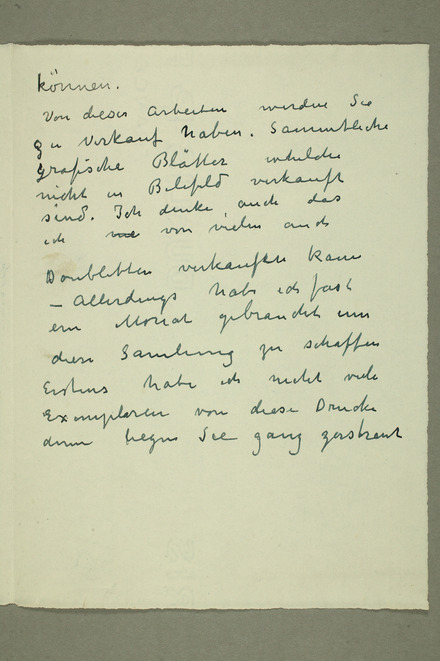 können.
Von dieser arbeiten werden Sie
zu Verkauf haben. Sammtliche
grafische Blätter
nicht in Bilefeld verkauft
sind. Ich denke, auch das
ich von vielen auch
Doubletten verkaufen kann
– Allerdings habe ich fast
ein Monat gebraucht um
diese Samlung zu schaffen
Erstens habe ich nicht viele
Exemplaren von diese Drucke
dann liegen Sie ganz zerstreut